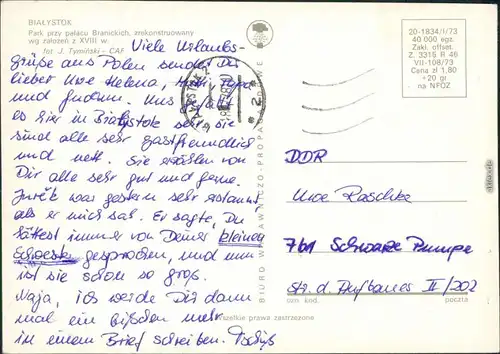 BIAŁYSTOK
Park przy pałacu Branickich, zrekonstruowany
wg założeń z XVIII w.
fot J. Tymiński - CAF
Viele Urlaubs-
grüße aus Polen sendet Dir
lieber Uwe Helena, Papa
und Gudrun. Uns
es hier in Białystok sehr, sie
sind alle sehr gastfreundlich
und nett. Sie erzählen von
Dir alle sehr gut und gerne.
Jurek war gestern sehr erstaunt
als er mich sah. Er sagte, Du
hättest immer von Deiner kleinen
Schwester gesprochen, und nun
ist sie schon so groß.
Naja, ich werde Dir dann
mal ein bißchen mehr
in einem Brief schreiben. Tschüß
BIURO WYDAWNICZO-PROPAGANDOWE
20-1834/I/73
40 000 egz.
Zakł. offset.
Z. 3315 R 46
VII-108/73
Cena zł 1,80
+20 gr
na NFOZ
DDR
Uwe Raschke
761 Schwarze Pumpe
Str. d. Aufbaues II/202
ozn kod. poczta
Wszelkie prawa zastrzeżone